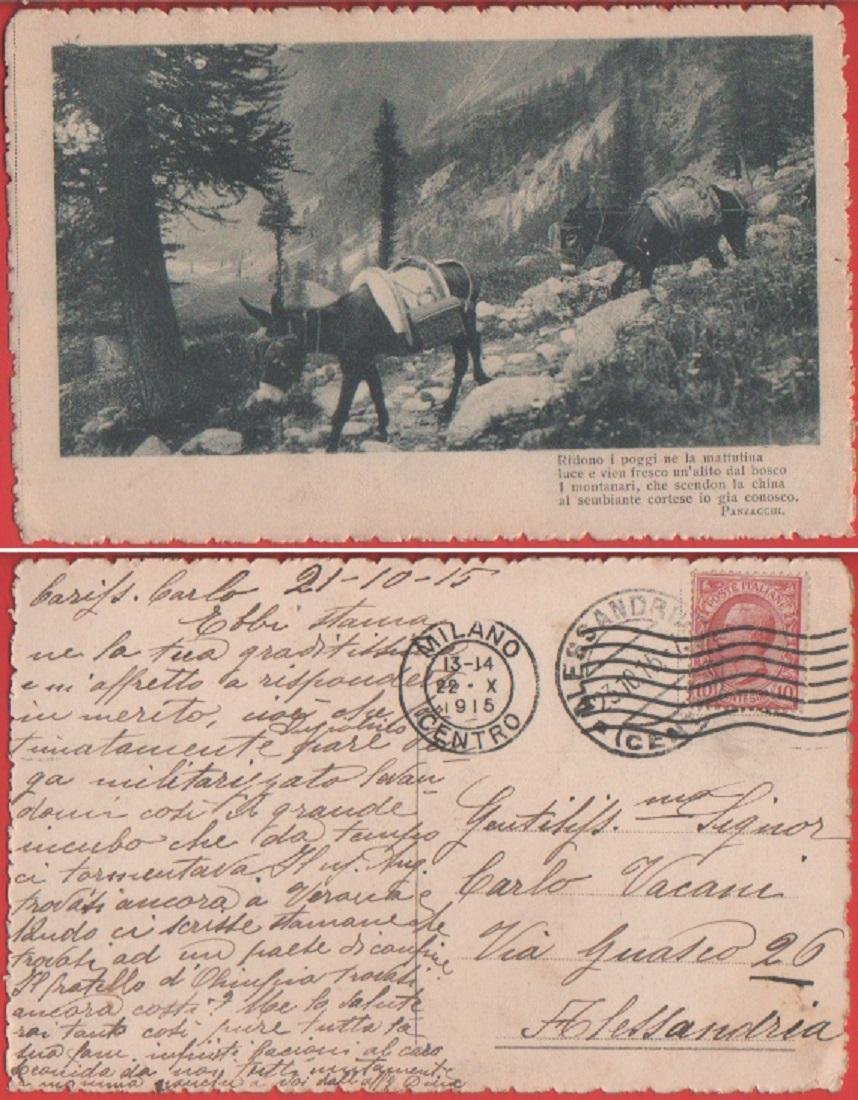 Ridono i poggi ne la mattutina
luce e vien fresco un'alito dal bosco
I montanari, che scendon la china
al sembiante cortese io gia conosco.
PANZACCHI.
Cariss. Carlo 21-10-15
Ebbi stama
ne la tua graditiss
e m'affretto a risponder
in merito, cioè che
tunatamente pare
ga militarizzato levan
domi così il grande
incubo che da tempo
ci tormentava. Il
trovasi ancora a Verona e
ci scrisse stamane che
trovasi ad un paese di confine
Il fratello d' trovasi
ancora costì? Me lo salute
rai tanto così pure tutta la
sua fam. infiniti bacioni al caro
da noi tutti unitamente
a mamma a voi
MILANO
13-14
22 - X
1915
CENTRO
ALESSANDRIA
(CEN
POSTE ITALIANE
10 CENTESIMI 10
Gentiliss.mo Signor
Carlo Vacani
Via Guasco 26
Alessandria